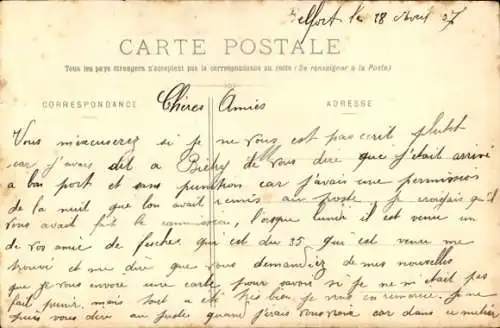 Belfort le 18 Avril 07
CARTE POSTALE
Tous les pays étrangers n'acceptent pas la correspondance au recto (Se renseigner à la Poste)
CORRESPONDANCE
ADRESSE
Chères Amies
Vous m'excuserez si je ne vous est pas ecrit plutot
car j'avais dit a de vous dire que j'etait arrivé
a bon port et sans punition car j'avais une permission
de la nuit que l'on avait remis au poste je croyais qu'il
vous avait fait la commission, l'orsque lundi il est venu un
de vos amie de qui est du 35 qui est venu me
trouvé et me dire que vous demandiez de mes nouvelles
que je vous envoie une carte pour savoir si je ne m'etait pas
fait punir, mais tout a été tres bien je vous en remercie. Je ne
puis vous dire au juste quand j'irais vous voir car dans ce metier